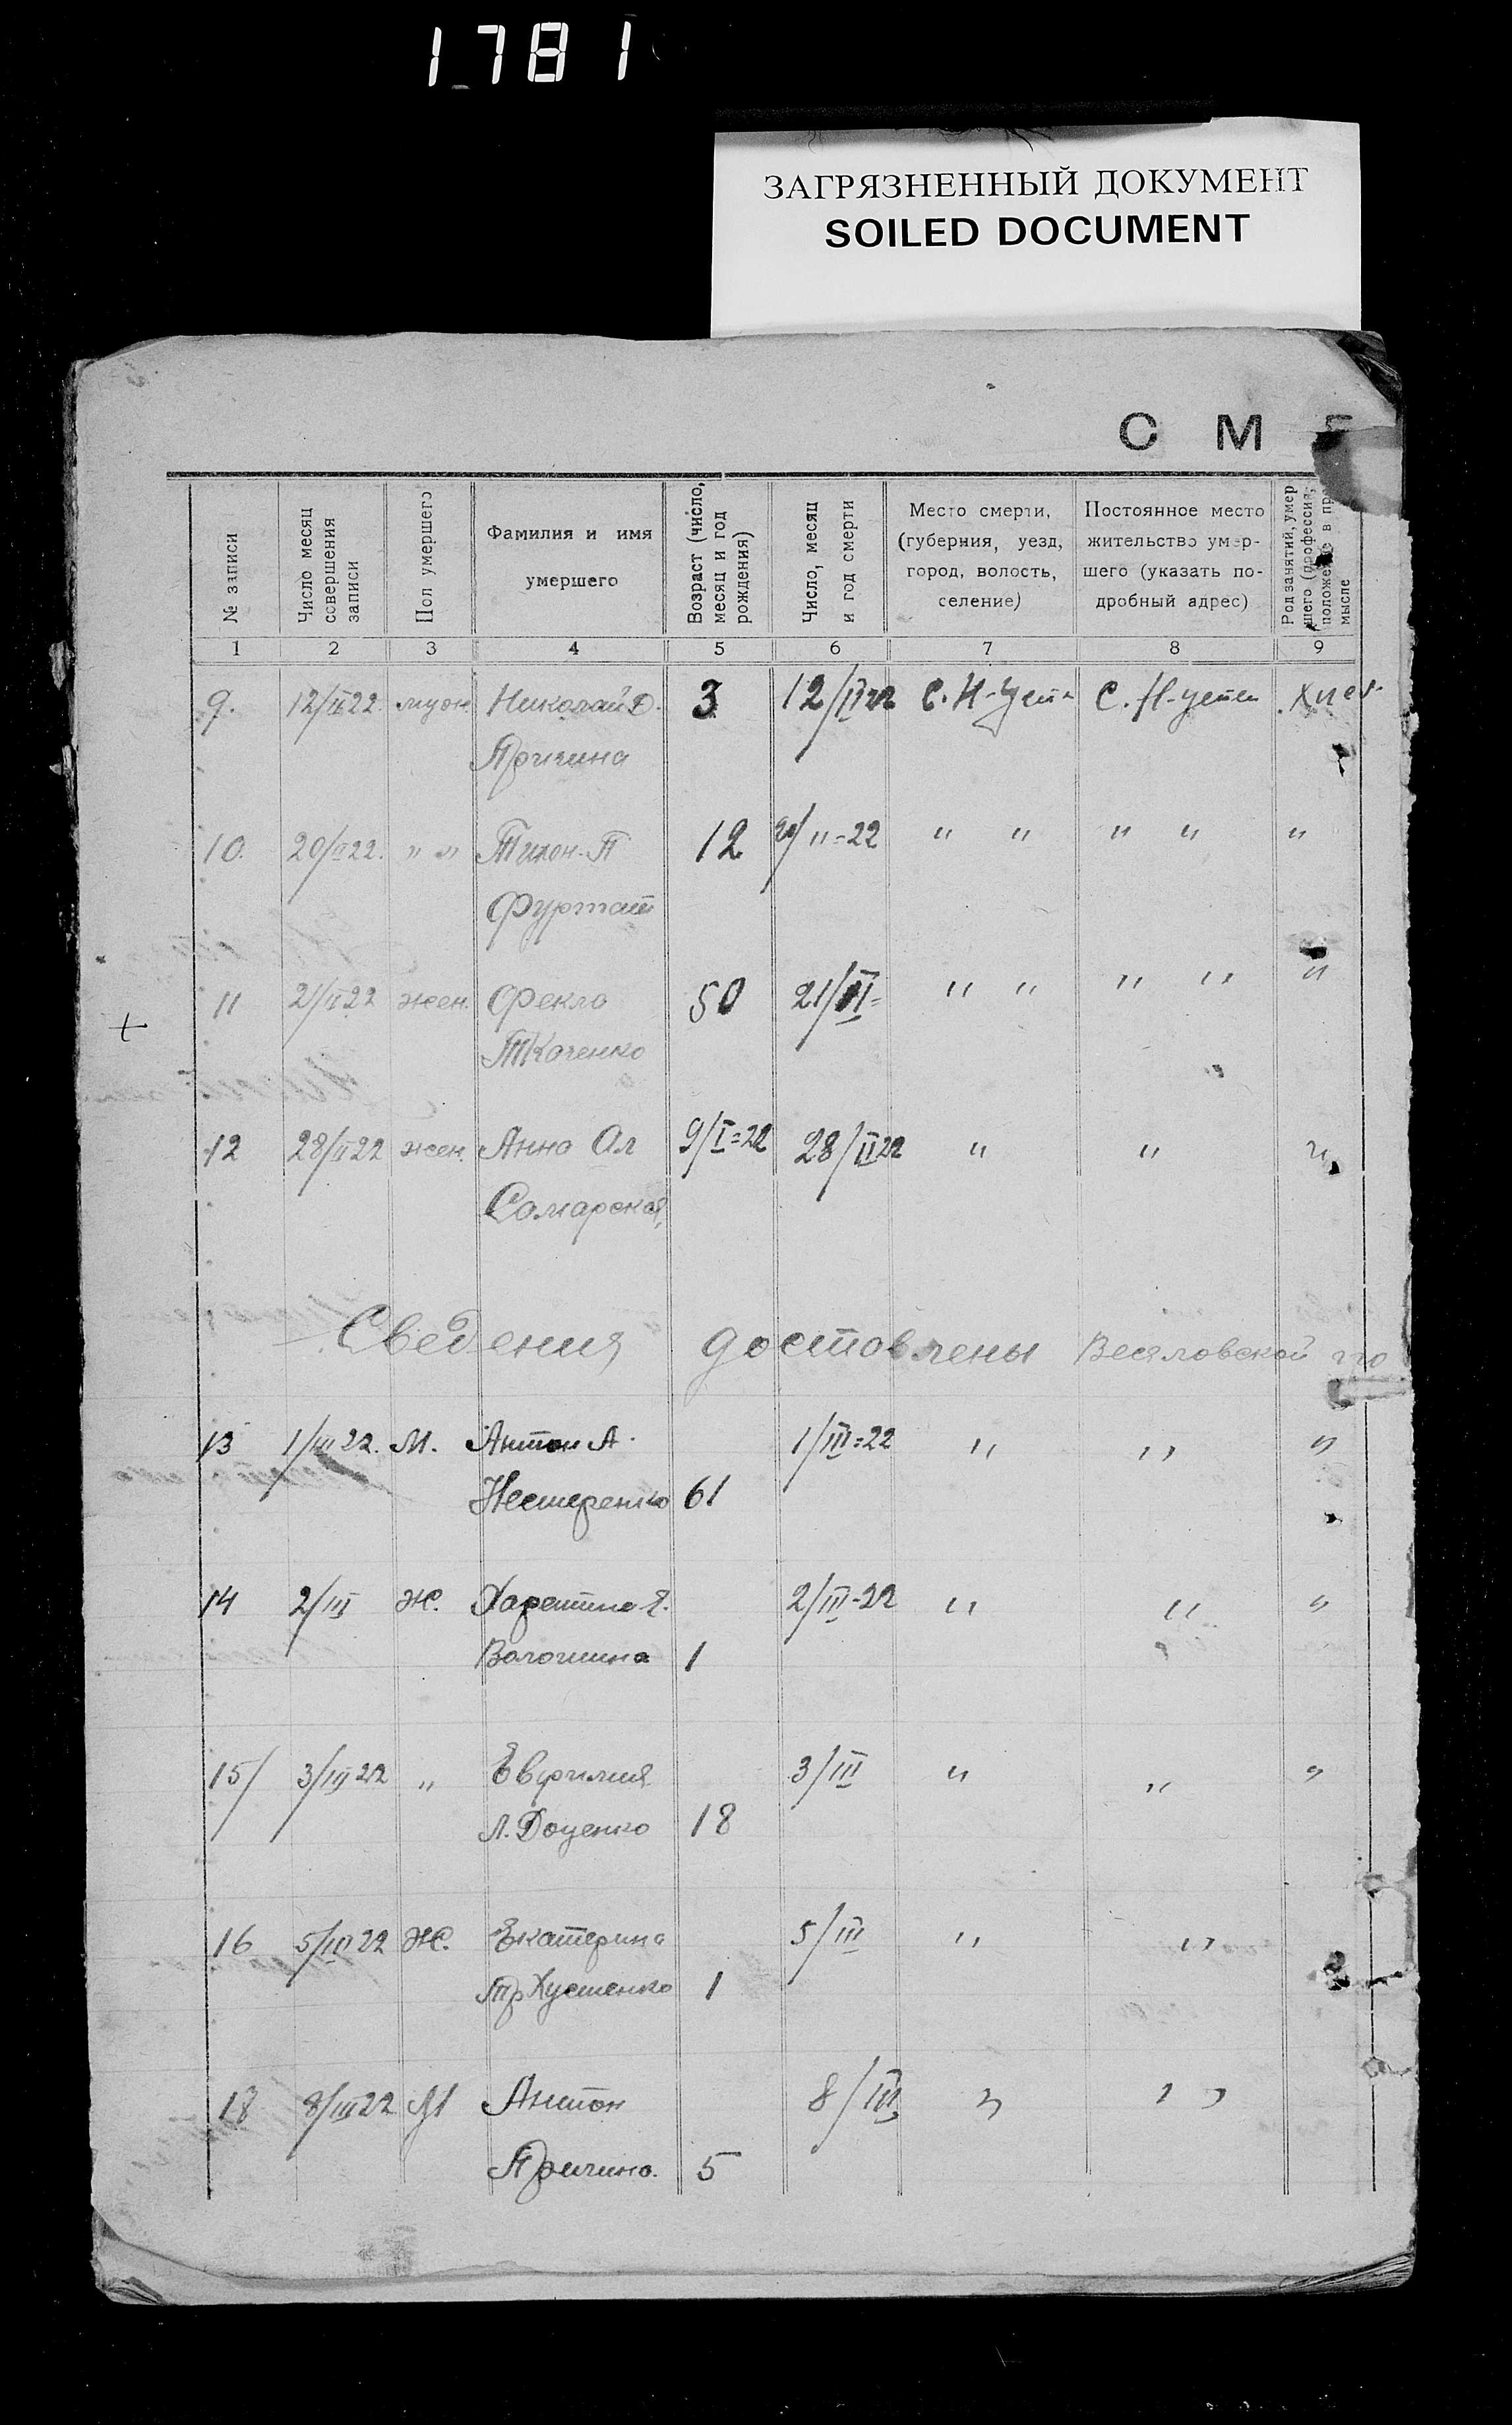 1781
ЗАГРЯЗНЕННЫЙ ДОКУМЕНТ
SOILED DOCUMENT
С М Е
№ записи
Число месяц
совершения
записи
Пол умершего
Фамилия и имя
умершего
Возраст (число,
месяц и год
рождения)
Число, месяц
и год смерти
Место смерти,
(губерния, уезд,
город, волость,
селение)
Постоянное место
жительства умер-
шего (указать по-
дробный адрес)
Род занятий, умер
шего (профессия,
положение в пр
мысле
1 2 3 4 5 6 7 8 9
9. 12/II 22. Николай Д. 3 12/II 22 С. Н-
С. Н-
10. 20/II 22. " " Тихон П 12 20/II=22 " " " " "
11 21/II 22 жен. Фекла 50 21/II= " " " " "
Ткаченко
12 28/II 22 жен. Анна Ал 9/I=22 28/II 22 " " "
Самарская
Сведения доставлены Веселовской
13 1/III 22. М. Антон А. 1/III=22 " " "
Нестеренко 61
14 2/III Ж. 2/III-22 " " "
Волошина 1
15/ 3/III 22 " 3/III " " "
Л. Доценко 18
16 5/III 22 Ж. Екатерина 5/III " "
Тр 1
18 8/III 22 М Антон 8/III " "
5